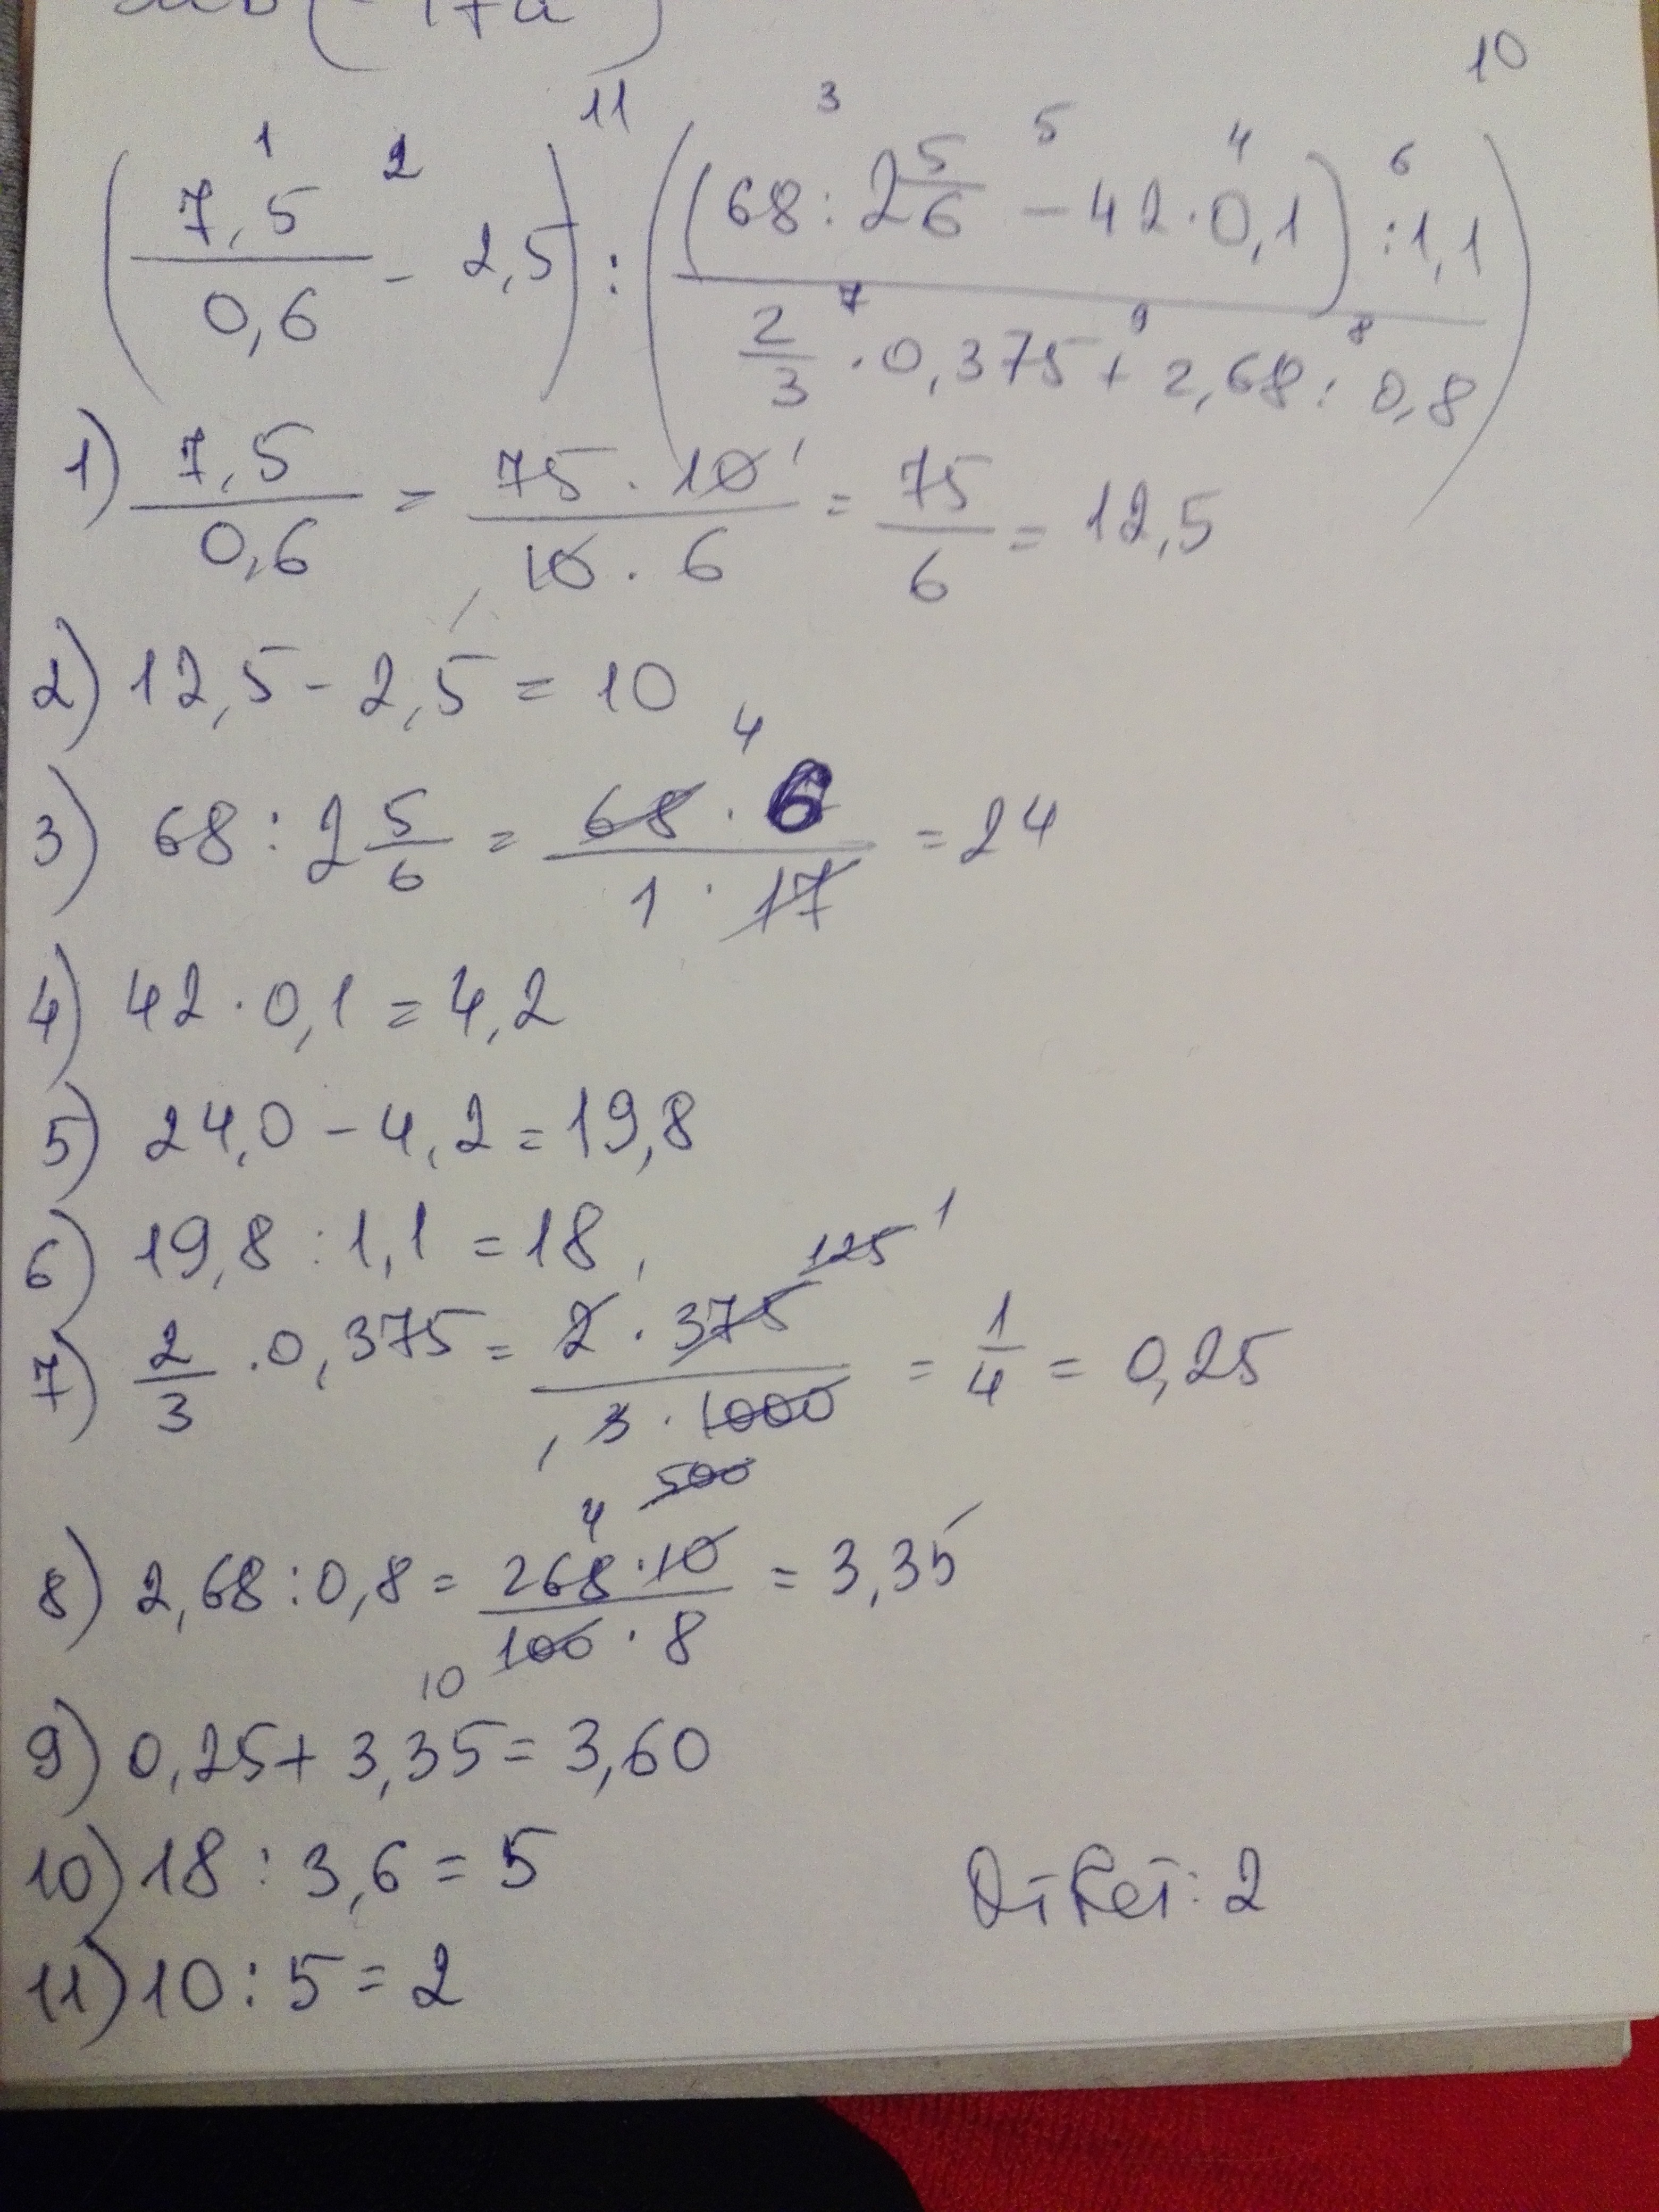 (-17a)
10
11 3 5 4 6
1 2
(7,5/0,6 - 2,5) : ((68 : 2 5/6 - 42 · 0,1) : 1,1 / 2/3 · 0,375 + 2,68 : 0,8)
7 9 8
1) 7,5/0,6 = 75 · 10/10 · 6 = 75/6 = 12,5
2) 12,5 - 2,5 = 10
3) 68 : 2 5/6 = 68 · 6/1 · 17 = 24
4
4) 42 · 0,1 = 4,2
5) 24,0 - 4,2 = 19,8
6) 19,8 : 1,1 = 18
125 1
7) 2/3 · 0,375 = 2 · 375/3 · 1000 = 1/4 = 0,25
500
4
8) 2,68 : 0,8 = 268 · 10/100 · 8 = 3,35
10
9) 0,25 + 3,35 = 3,60
10) 18 : 3,6 = 5
11) 10 : 5 = 2
: 2